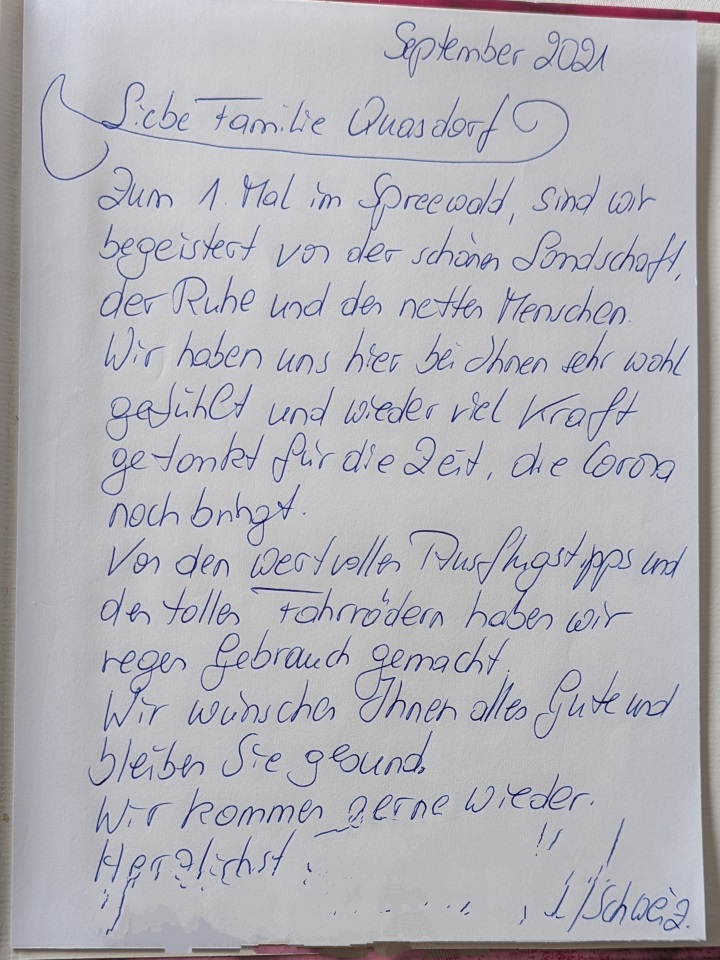 September 2021
Liebe Familie Quasdorf
Zum 1. Mal im Spreewald, sind wir
begeistert von der schönen Landschaft,
der Ruhe und den netten Menschen.
Wir haben uns hier bei Ihnen sehr wohl
gefühlt und wieder viel Kraft
getankt für die Zeit, die Corona
noch bringt.
Von den wertvollen Ausflugstipps und
den tollen Fahrrädern haben wir
regen Gebrauch gemacht.
Wir wünschen Ihnen alles Gute und
bleiben Sie gesund.
Wir kommen gerne wieder.
Herzlichst
/Schweiz.